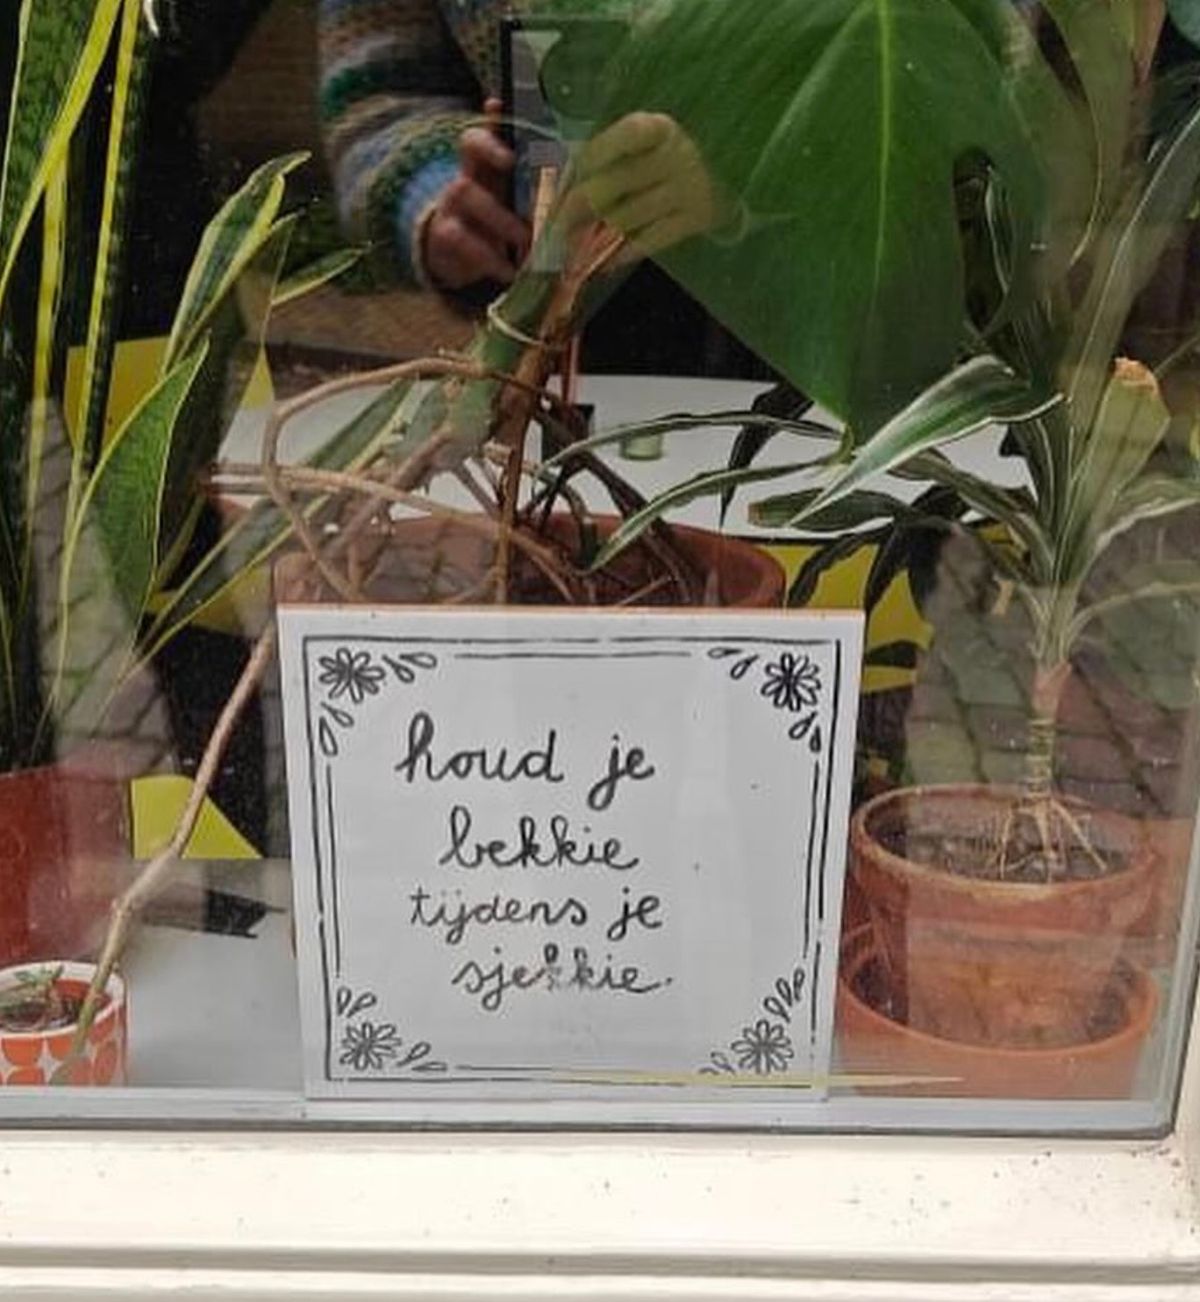 houd je
bekkie
tijdens je
sjekkie.